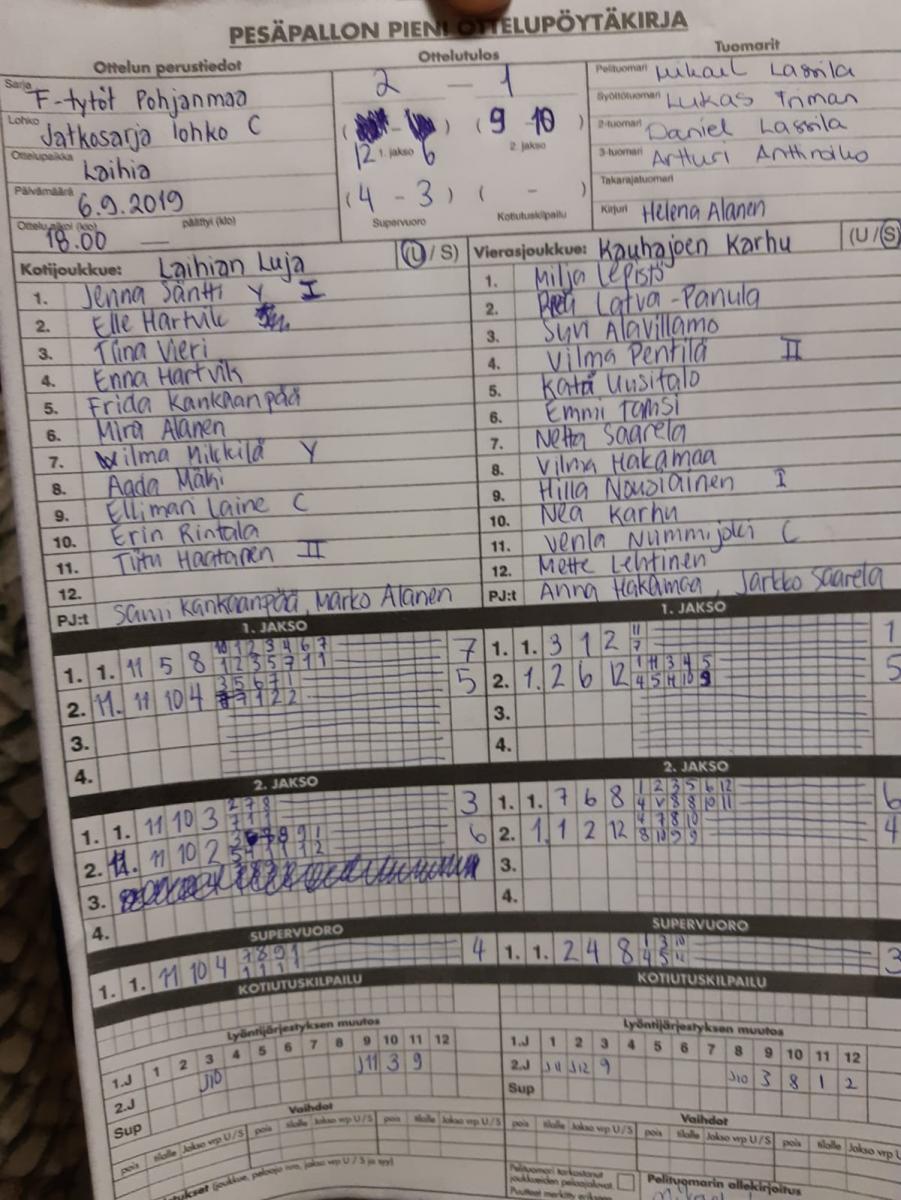 PESÄPALLON PIENI OTTELUPÖYTÄKIRJA
Ottelun perustiedot
Sarja F-tytöt Pohjanmaa
Lohko Jatkosarja lohko C
Ottelupaikka Laihia
Päivämäärä 6.9.2019
Ottelu alkoi (klo) 18.00 päättyi (klo) —
Ottelutulos
2 — 1
12 1. jakso 6
( 9 - 10 ) 2. jakso
( 4 - 3 ) Supervuoro
( - ) Kotiutuskilpailu
Tuomarit
Pelituomari Mikael Lassila
Syöttötuomari Lukas Triman
2-tuomari Daniel Lassila
3-tuomari Artturi
Takarajatuomari
Kirjuri Helena Alanen
Kotijoukkue: Laihian Luja (U / S)
1. Jenna Säntti Y I
2. Elle Hartvik
3. Tiina Vieri
4. Enna Hartvik
5. Frida Kankaanpää
6. Mira Alanen
7. Wilma Mikkilä Y
8. Aada Mäki
9. Ellimari Laine C
10. Erin Rintala
11. Tiitu Haatanen II
12.
PJ:t Sami Kankaanpää, Marko Alanen
Vierasjoukkue: Kauhajoen Karhu (U / S)
1. Milja Lepistö
2. Latva-Panula
3. Syri Alavillamo
4. Vilma Pentilä II
5. Kata Uusitalo
6. Emmi Tamsi
7. Netta Saarela
8. Vilma Hakamaa
9. Hilla Nousiainen I
10. Nea Karhu
11. Venla Nummijoki C
12. Mette Lehtinen
PJ:t Anna Hakamaa, Jarkko Saarela
1. JAKSO
1. 1. 11 5 8 10 1 2 3 4 6 7 7
1 2 3 5 7 11
2. 11. 11 10 4 3 5 6 7 1 5
7 1 2 2
3.
4.
1. JAKSO
1. 1. 3 12 11 1
7
2. 1. 2 6 12 1 11 3 4 5 5
4 5 11 10 9
3.
4.
2. JAKSO
1. 1. 11 10 3 2 7 8 3
7 1 1
2. 11. 11 10 2 6
3.
4.
2. JAKSO
1. 1. 7 6 8 1 2 3 5 6 12 6
4 8 8 10 11
2. 1. 1 2 12 4 7 8 10 4
8 10 9 9
3.
4.
SUPERVUORO
1. 1. 11 10 4 7 8 9 1 4
1 1 1 1
SUPERVUORO
1. 1. 2 4 8 1 3 10 3
4 5 11
KOTIUTUSKILPAILU
KOTIUTUSKILPAILU
Lyöntijärjestyksen muutos
1 2 3 4 5 6 7 8 9 10 11 12
1.J J10 J11 3 9
2.J
Sup
Lyöntijärjestyksen muutos
1.J 1 2 3 4 5 6 7 8 9 10 11 12
2.J J11 J12 9 J10 3 8 1 2
Sup
Vaihdot
pois tilalle Jakso vrp U/S pois tilalle Jakso vrp U/S pois tilalle Jakso vrp U/S
Vaihdot
pois tilalle Jakso vrp U/S pois tilalle Jakso vrp U/S pois tilalle Jakso vrp U
(joukkue, pelaaja nro, jakso vrp U / S ja syy)
Pelituomari tarkastanut
joukkueiden pelaajaluvat
Puutteet merkitty
Pelituomarin allekirjoitus